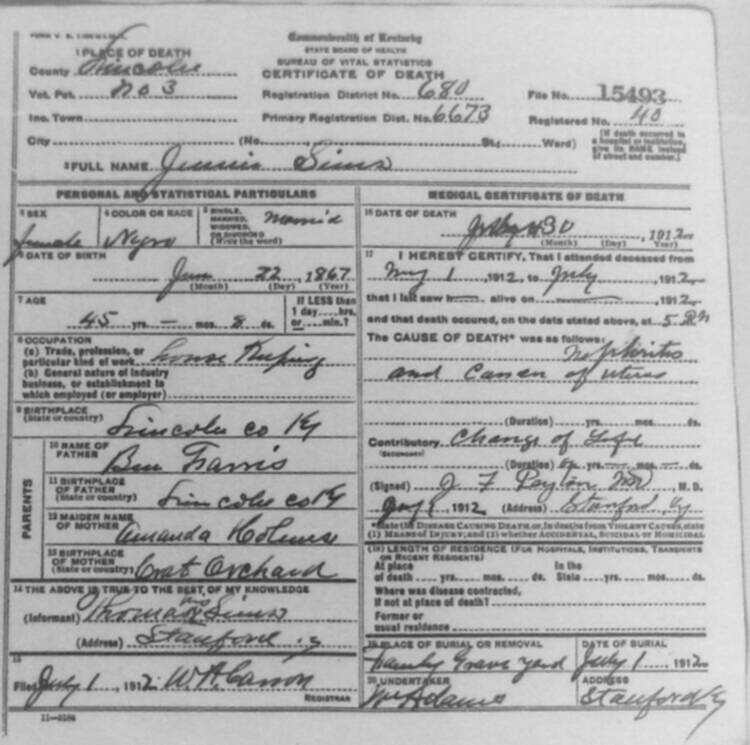 Commonwealth of Kentucky
STATE BOARD OF HEALTH
BUREAU OF VITAL STATISTICS
CERTIFICATE OF DEATH
1 PLACE OF DEATH
County Lincoln
Vot. Pct. No 3
Registration District No. 680
File No. 15493
Inc. Town
Primary Registration Dist. No. 6673
Registered No. 40
City (No. St.; Ward)
[If death occurred in a hospital or institution, give its NAME instead of street and number.]
2 FULL NAME Jennie Sims
PERSONAL AND STATISTICAL PARTICULARS
3 SEX
female
4 COLOR OR RACE
Negro
5 SINGLE, MARRIED, WIDOWED, OR DIVORCED (Write the word)
Married
6 DATE OF BIRTH
22, 1867
(Month) (Day) (Year)
7 AGE
45 yrs. — mos. 8 ds.
If LESS than 1 day....hrs. or....min.?
8 OCCUPATION
(a) Trade, profession, or particular kind of work House Keeping
(b) General nature of industry business, or establishment in which employed (or employer)
9 BIRTHPLACE
(State or country) Lincoln co Ky
PARENTS
10 NAME OF FATHER
Ben Farris
11 BIRTHPLACE OF FATHER
(State or country) Lincoln co Ky
12 MAIDEN NAME OF MOTHER
Amanda
13 BIRTHPLACE OF MOTHER
(State or country) Crab Orchard
14 THE ABOVE IS TRUE TO THE BEST OF MY KNOWLEDGE
(Informant) Thomas Sims
(Address) Stanford Ky
15
Filed July 1, 1912 W. A. Carson
REGISTRAR
11-3184
MEDICAL CERTIFICATE OF DEATH
16 DATE OF DEATH
30, 1912
(Month) (Day) (Year)
17 I HEREBY CERTIFY, That I attended deceased from
May 1, 1912, to July, 1912
that I last saw h— alive on —, 1912
and that death occured, on the date stated above, at 5
The CAUSE OF DEATH* was as follows:
Nephritis
and Cancer of uterus
(Duration) yrs. mos. ds.
Contributory Change of Life
(SECONDARY)
(Duration) yrs. — mos. — ds.
(Signed) J. F. Peyton MD M. D.
July 1, 1912 (Address) Stanford, Ky
*State the DISEASE CAUSING DEATH, or, in deaths from VIOLENT CAUSES, state
(1) MEANS OF INJURY; and (2) whether ACCIDENTAL, SUICIDAL OR HOMICIDAL
18 LENGTH OF RESIDENCE (FOR HOSPITALS, INSTITUTIONS, TRANSIENTS OR RECENT RESIDENTS)
At place of death yrs. mos. ds. In the State yrs. mos. ds.
Where was disease contracted, if not at place of death?
Former or usual residence
19 PLACE OF BURIAL OR REMOVAL
Family Grave Yard
DATE OF BURIAL
July 1, 1912
20 UNDERTAKER
Wm Adams
ADDRESS
Stanford Ky